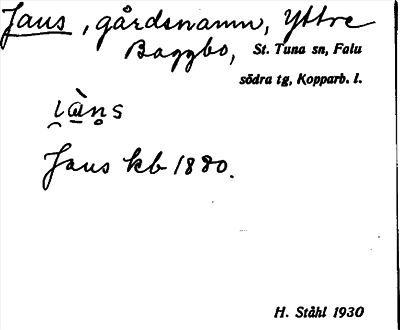 Jans, gårdsnamn, Yttre
Baggbo, St. Tuna sn, Falu
södra tg, Kopparb. l.
Jans kb 1880.
H. Ståhl 1930